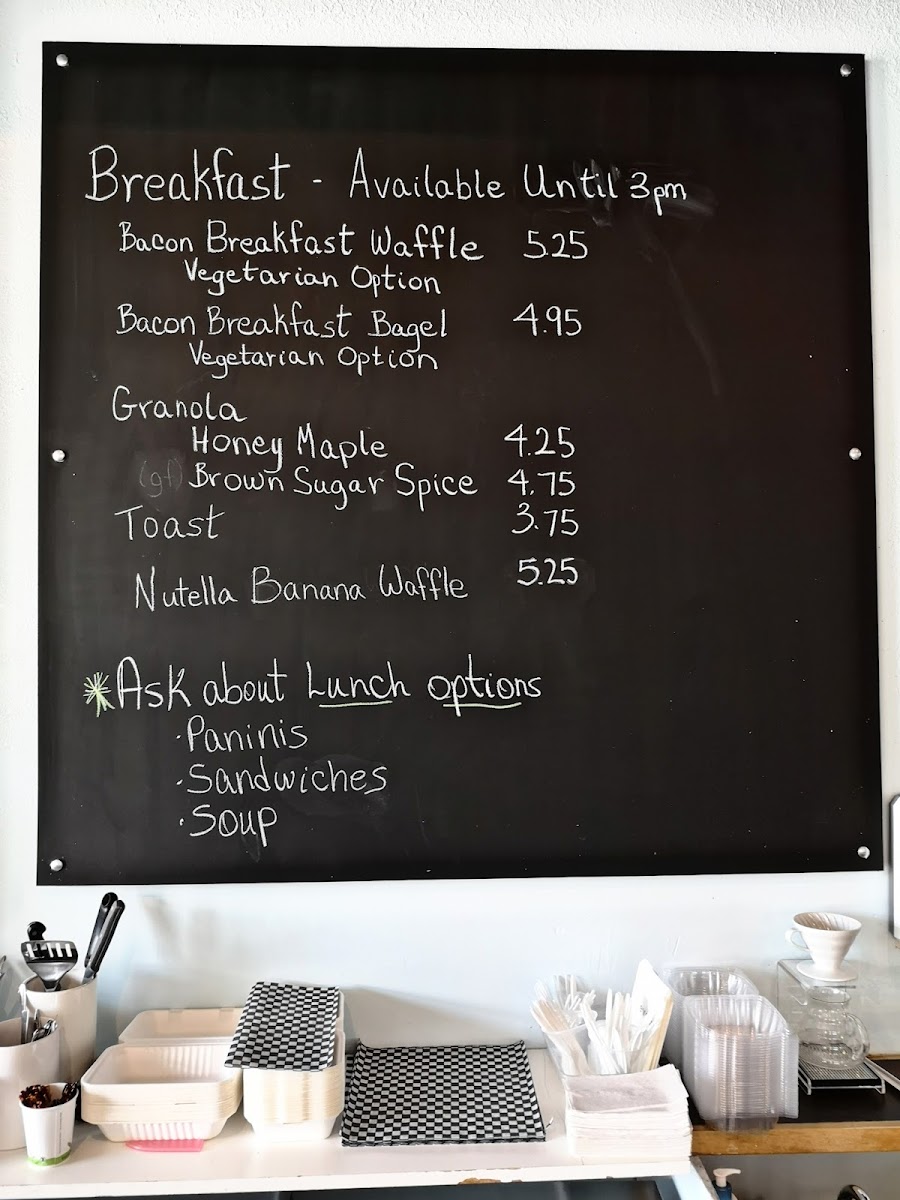 Breakfast - Available Until 3pm
Bacon Breakfast Waffle 5.25
Vegetarian Option
Bacon Breakfast Bagel 4.95
Vegetarian Option
Granola
Honey Maple 4.25
(gf) Brown Sugar Spice 4.75
Toast 3.75
Nutella Banana Waffle 5.25
*Ask about Lunch options
·Paninis
·Sandwiches
·Soup